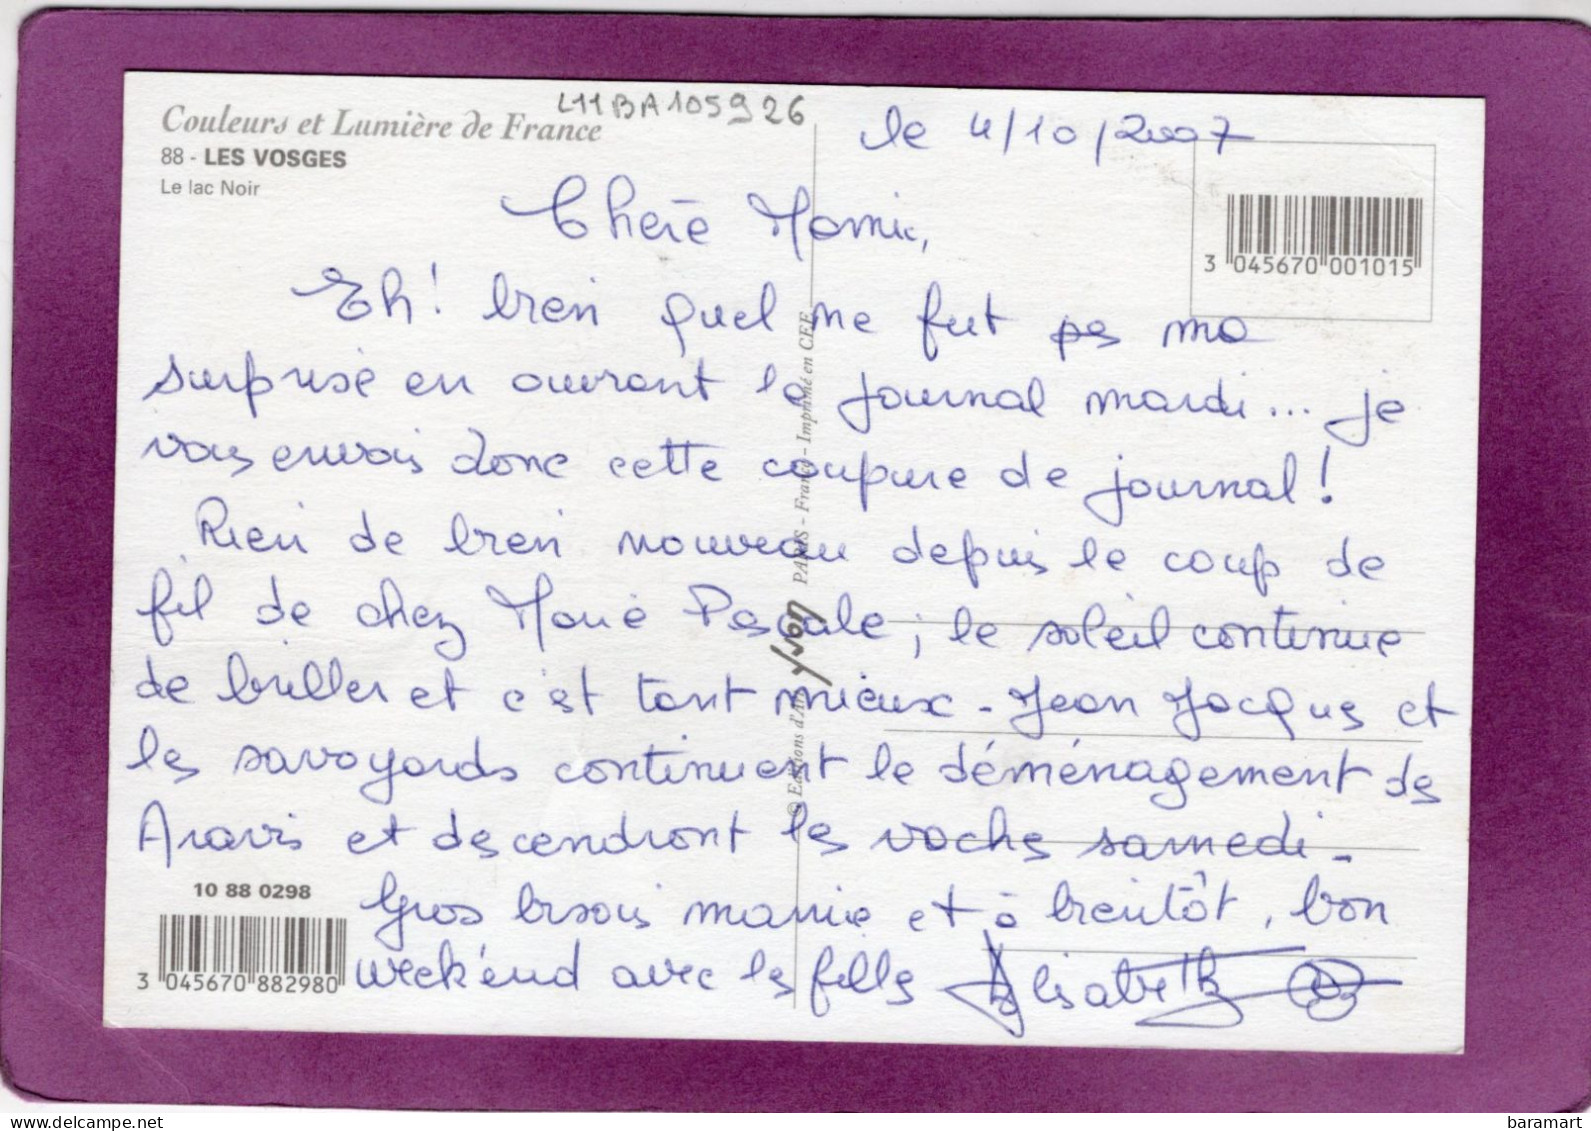 L11BA105926
Couleurs et Lumière de France
88 - LES VOSGES
Le lac Noir
le 4/10/2007
3 045670 001015
Chère Mamie,
Eh! bien quel ne fut pas ma
surprise en ouvrant le journal mardi... je
vous envois donc cette coupure de journal!
Rien de bien nouveau depuis le coup de
fil de chez Marie Pascale; le soleil continue
de briller et c'est tant mieux - Jean Jacques et
les savoyards continuent le déménagement des
Aravis et descendront les vaches samedi -
Gros bisous mamie et à bientôt, bon
week'end avec les filles Elisabeth
© Editions d'Art yvon PARIS - France - Imprimé en CEE
10 88 0298
3 045670 882980
baramart